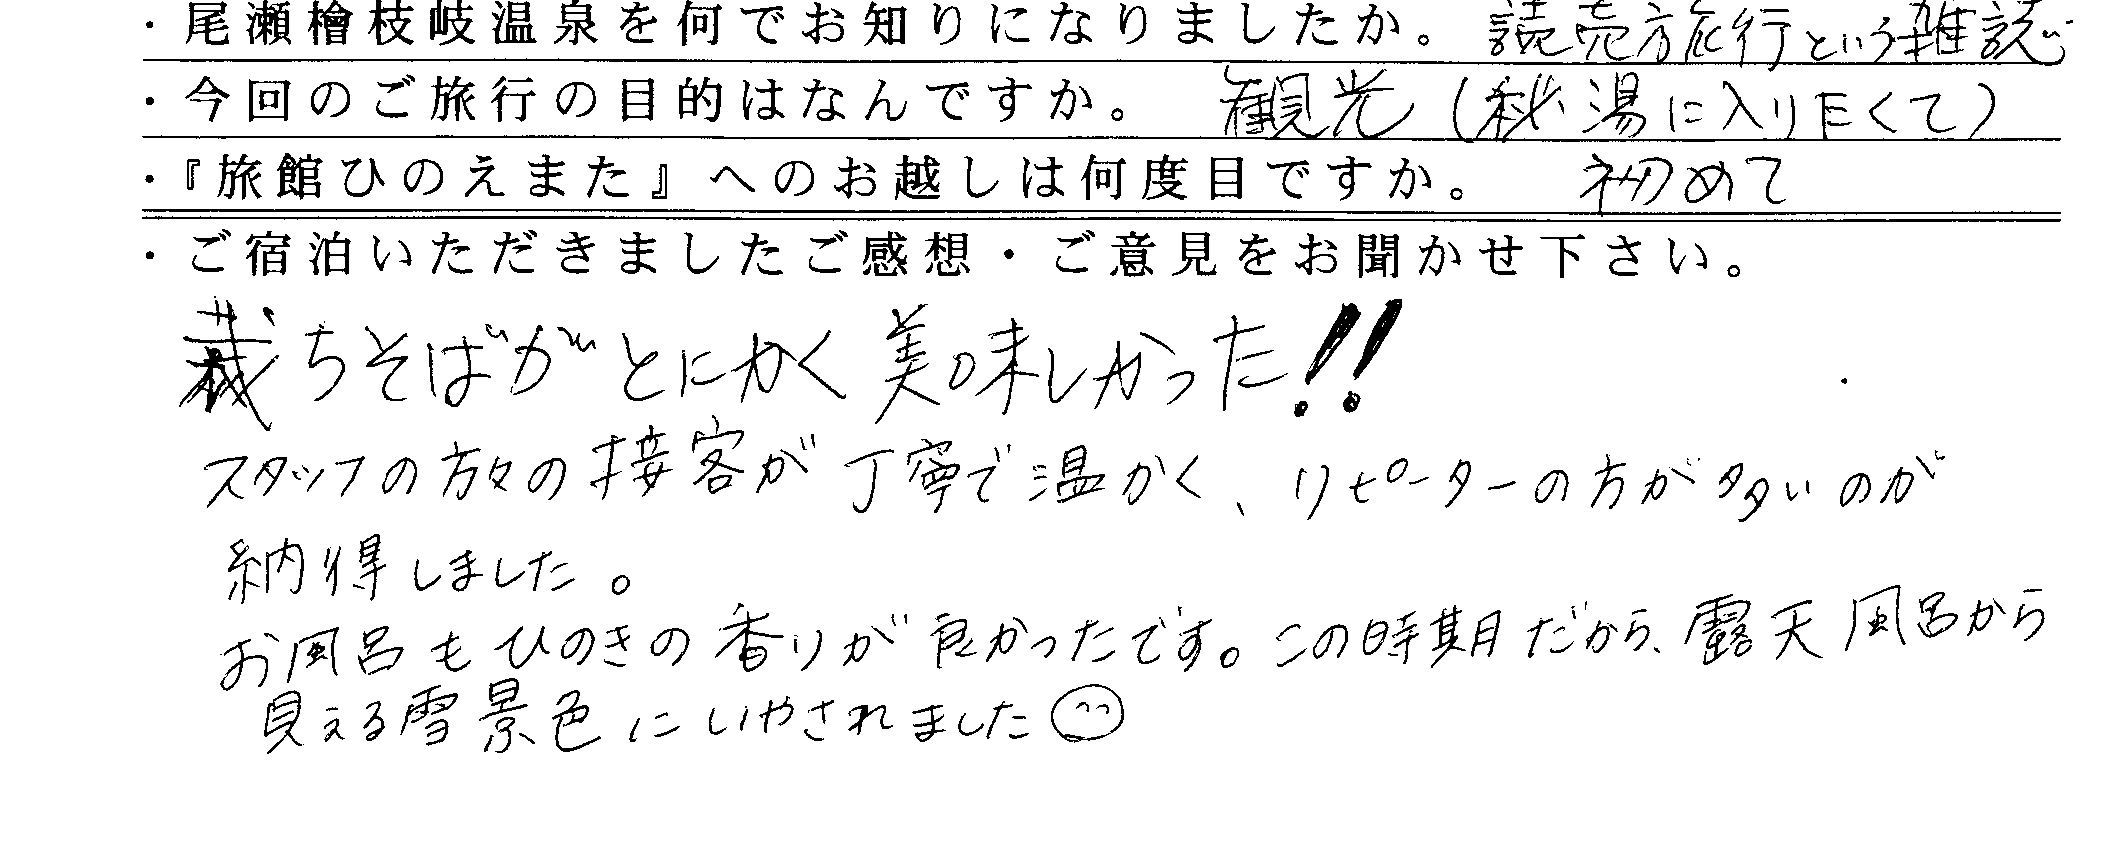 ・尾瀬檜枝岐温泉を何でお知りになりましたか。 読売旅行という雑誌
・今回のご旅行の目的はなんですか。 観光(秘湯に入りたくて)
・『旅館ひのえまた』へのお越しは何度目ですか。 初めて
・ご宿泊いただきましたご感想・ご意見をお聞かせ下さい。
裁ちそばがとにかく美味しかった!!
スタッフの方々の接客が丁寧で温かく、リピーターの方が多いのが
納得しました。
お風呂もひのきの香りが良かったです。この時期だから、露天風呂から
見える雪景色にいやされました